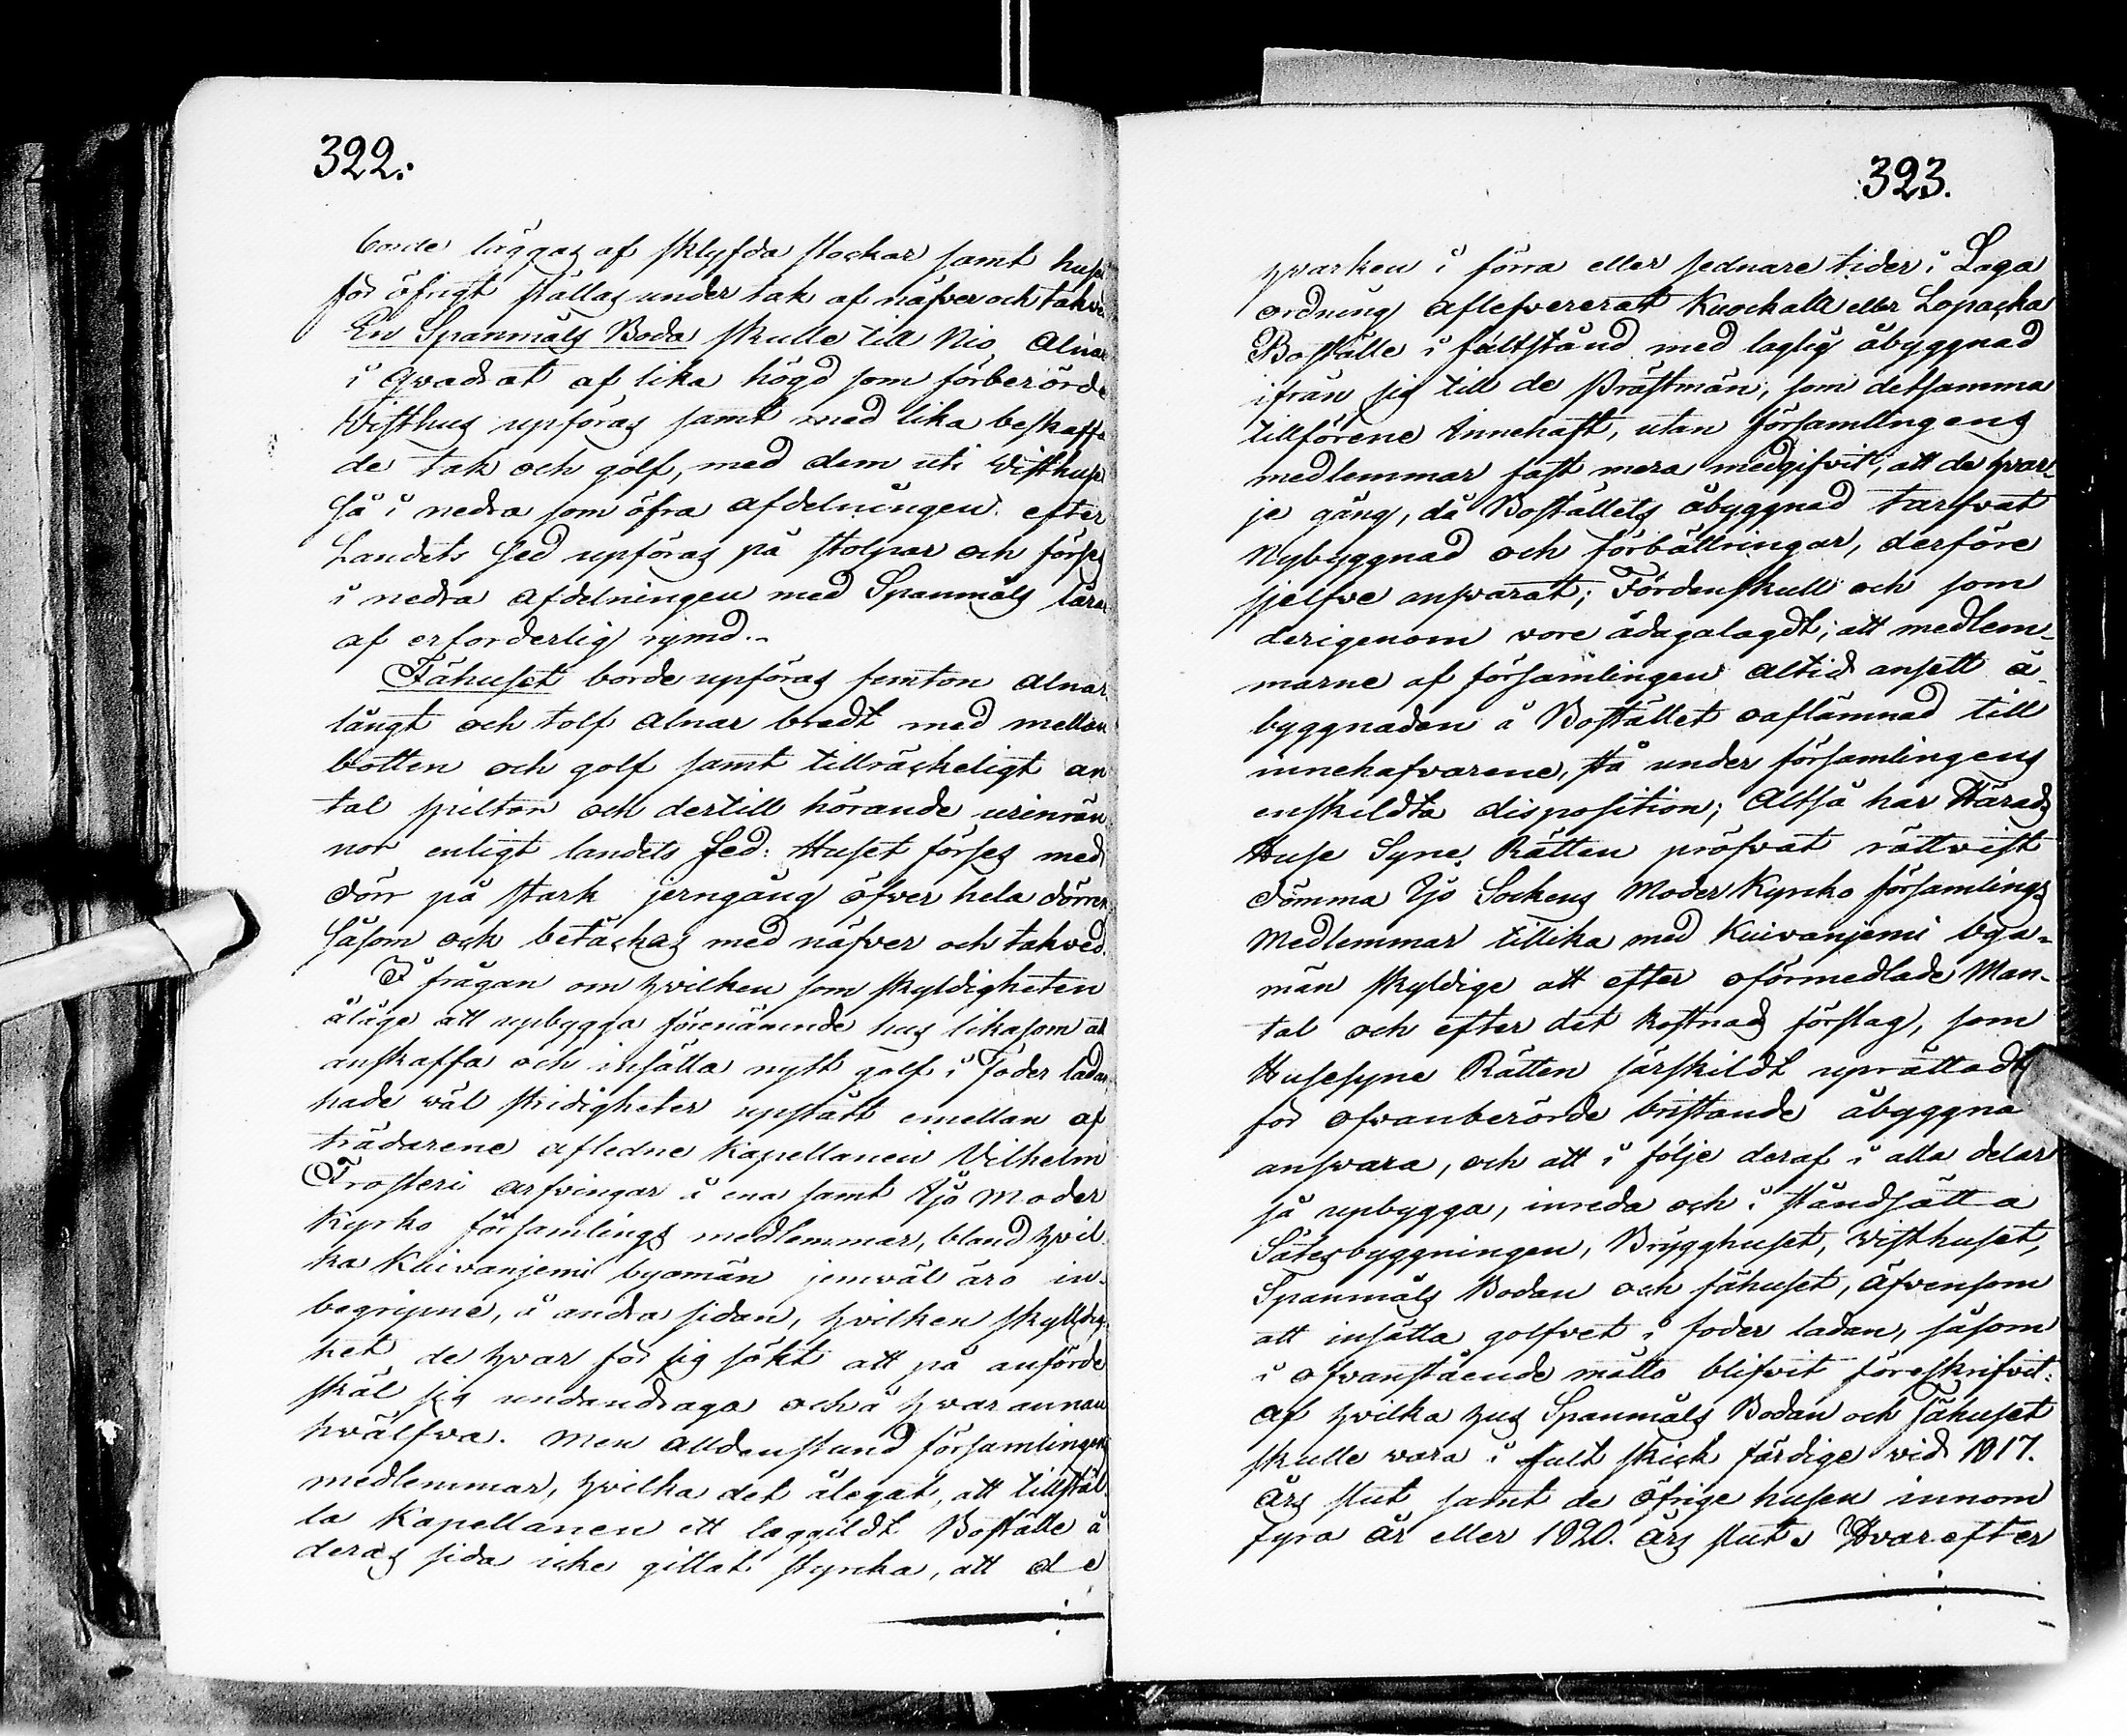 322.
borde läggas af sklyfda stockar samt huset
för öfrigt ställas under tak af näfver och takved
En Spanmåls Boda skulle till Nio Alnar
i Qvadrat af lika högd som förberörde
Visthus upföras samt med lika beskaffa
de tak och golf, med dem uti Visthuset
så i nedra som öfra afdelningen efter
Landets Sed upföras på stolpar och förses
i nedra afdelningen med Spanmåls lårar
af erforderlig rymd.
Fähuset borde upföras femton alnar
långt och tolf alnar bredt med mellan
botten och golf samt tillräckeligt an
tal spiltor och dertill hörande urinrän
nor enligt landets Sed: Huset förses med
dörr på stark jerngång öfver hela dörren
såsom ock betäckas med näfver och takved.
I frågan om hvilken som skyldigheten
åläge att upbygga förenämnde hus likasom at
anskaffa och insätta nytt golf i Foder ladan
hade wäl stridigheter upstått emellan af
trädarene afledne Kapellanen Vilhelm
Frosteri arfvingar å ena samt Ijo Moder
Kyrko församlings medlemmar, bland hvil
ka Kuivanjemi byamän jemwäl äro in-
begripne, å andra sidan, hvilken skyldig-
het de hvar för sig sökt att på anförde
skäl sig undandraga och å hvar annan
hwälfva. Men alldenstund församlingens
medlemmar, hvilka det ålegat, att tillstäl
la Kapellanen ett laggildt Boställe å
deras sida icke gittat styrcka, att de
323.
hvarken i förra eller sednare tider i Laga
ordning aflefvererat Kuockala eller Lopacka
Boställe i fultstånd med laglig åbyggnad
ifrån sig till de Prästmän, som detsamma
tillförene innehaft, utan församlingens
medlemmar fast mera medgifvit, att de hvar-
je gång, då Boställets åbyggnad tarfvat
Nybyggnad och förbättringar, derföre
sjelfve answarat; Fördenskull och som
derigenom vore ådagalagdt, att medlem-
marne af församlingen altid ansett å-
byggnaden å Bostället oaflämnad till
innehafvarene, stå under församlingens
enskildta disposition; Altså har Härads
Huse Syne Rätten pröfvat rättvist
dömma Ijo Sockens Moder Kyrcko församlings
Medlemmar tillika med Kuivanjemi bya-
män skyldige att efter oförmedlade Man-
tal och efter det kostnads förslag, som
Husesyne Rätten särskildt uprättadt
för ofvanberörde bristande åbyggna
answara, och att i följe deraf i alla delar
så upbygga, inreda och i ståndsätta
Sätesbyggningen, Brygghuset, Visthuset,
Spanmåls Bodan och fähuset, äfvensom
att insätta golfvet i foder ladan, såsom
i ofvanstående måtto blifvit föreskrifvit:
af hvilka hus Spanmåls Bodan och Fähuset
skulle vara i fult skick färdige vid 1817.
års slut samt de öfrige husen innom
fyra år eller 1820. års slut. Hvarefter